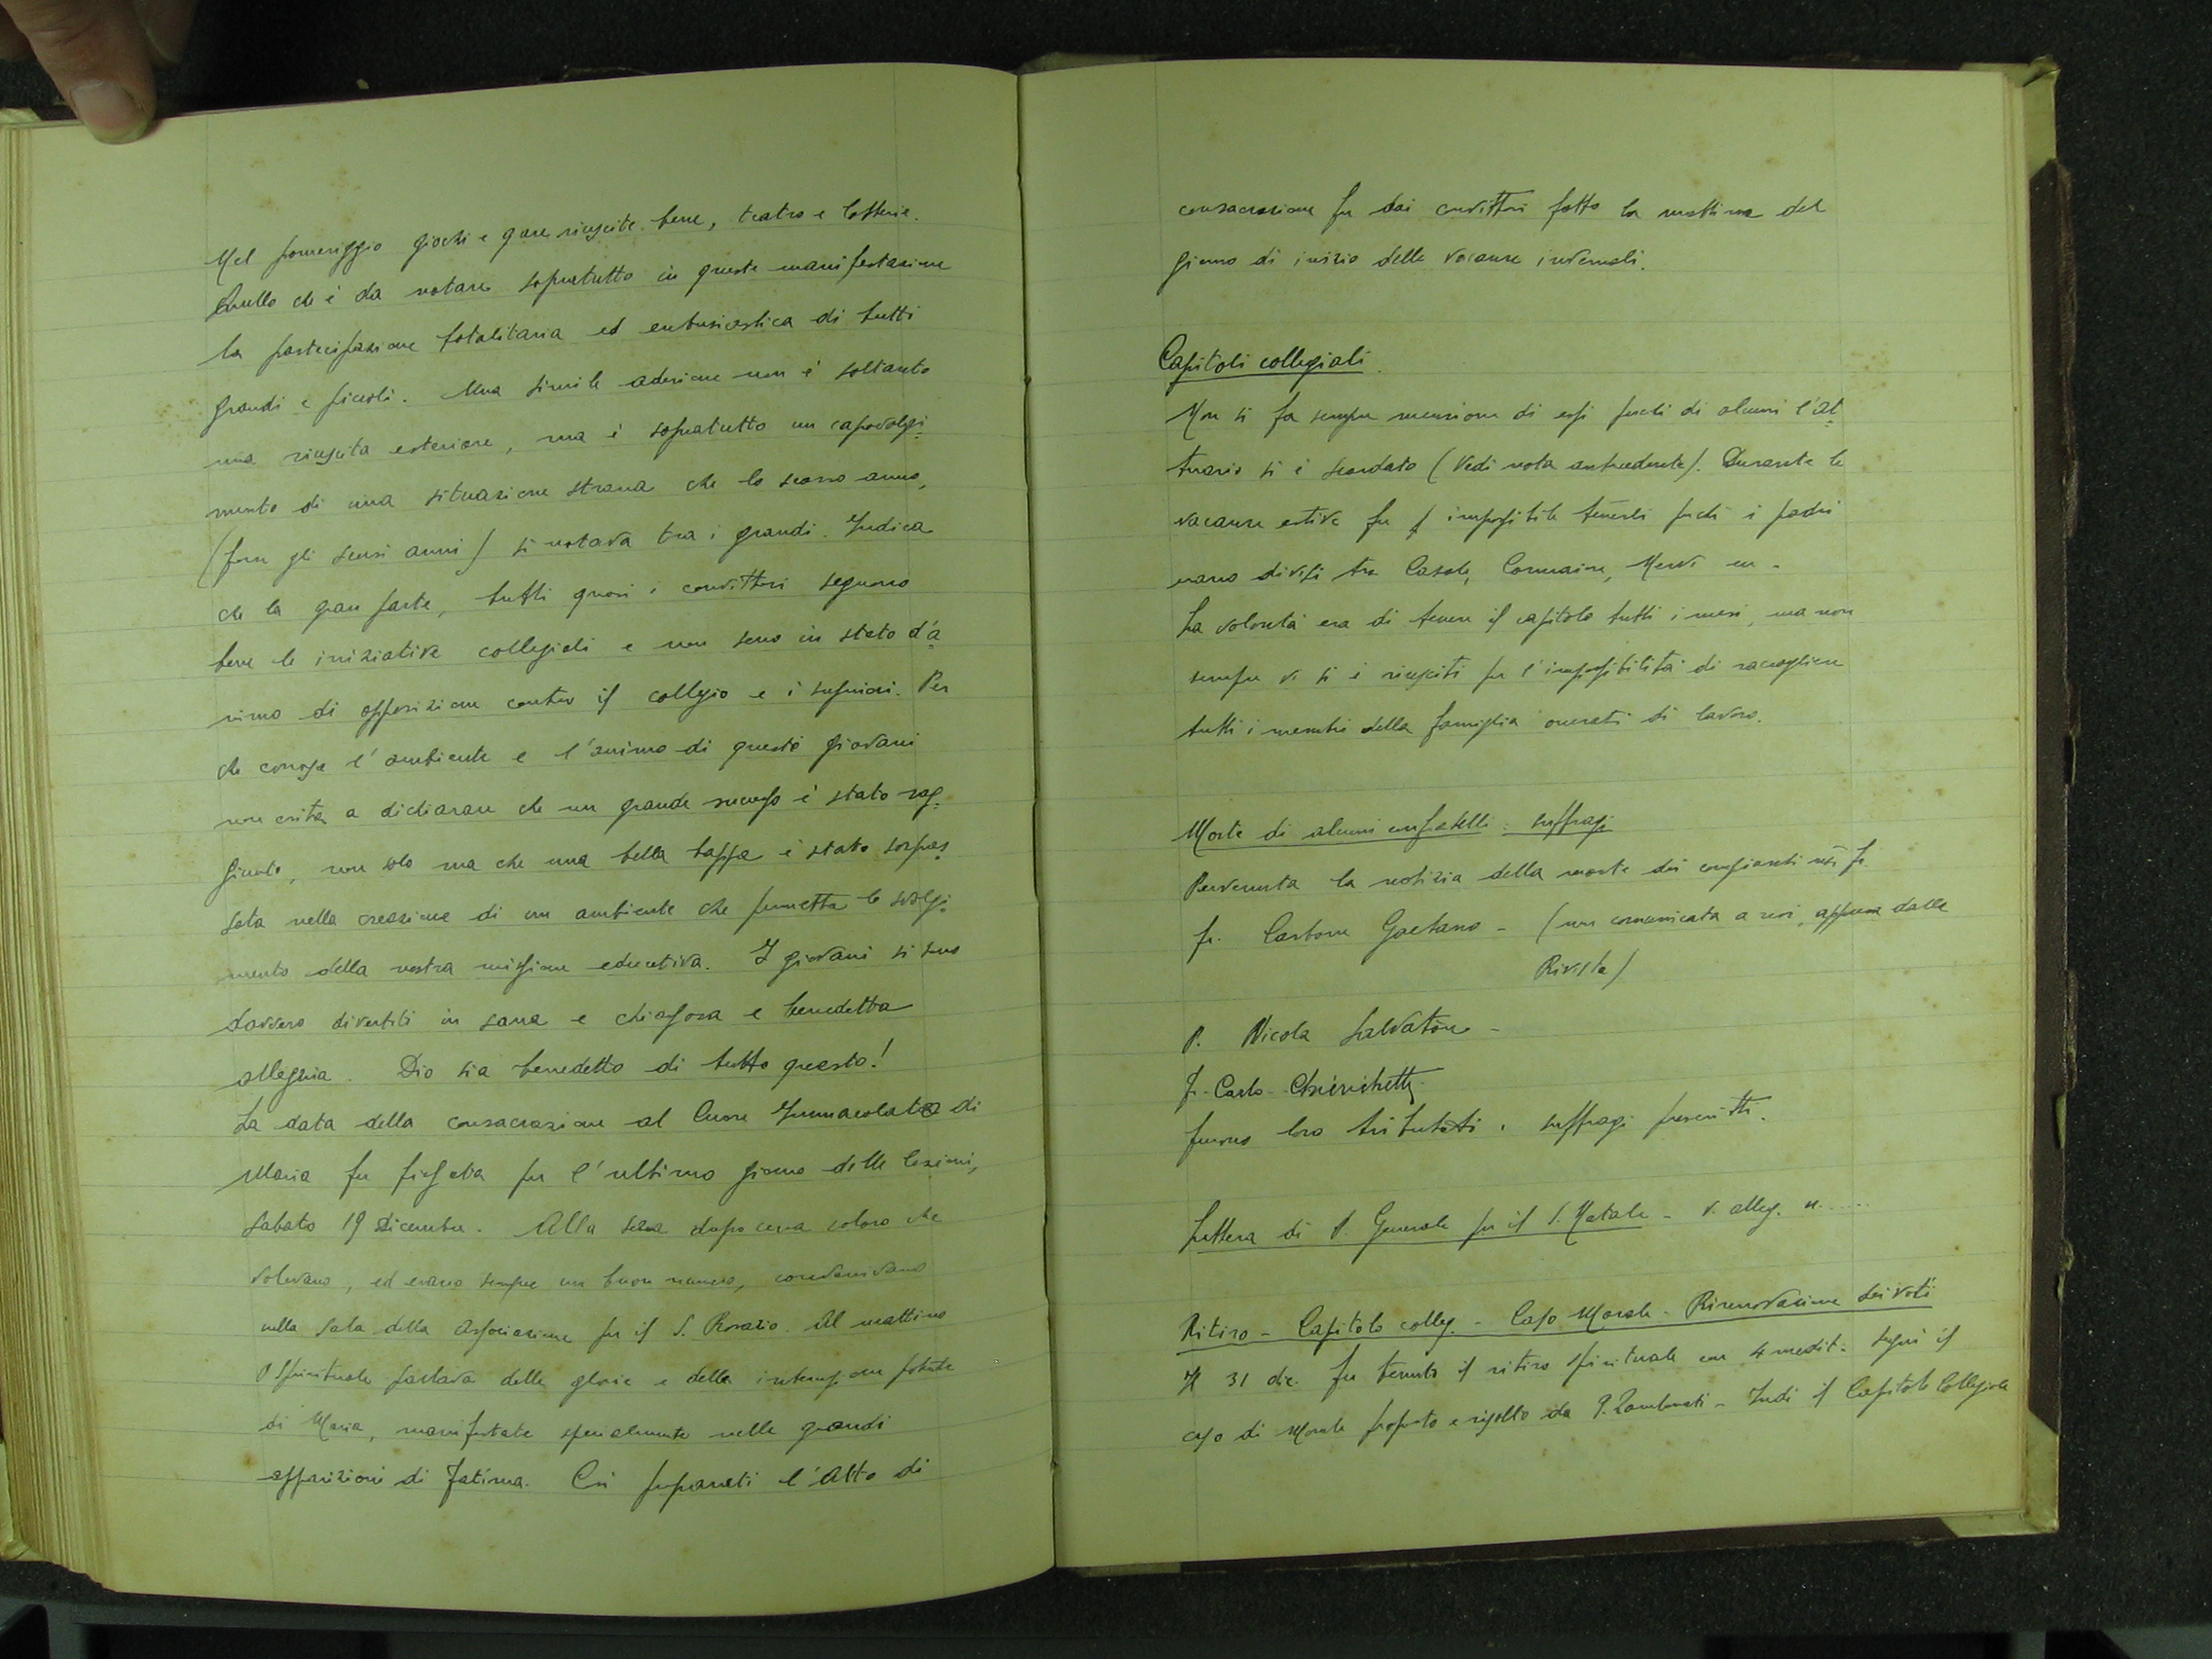 Nel pomeriggio giochi e gare riuscite bene, teatro e lotterie.
Quello che è da notare sopratutto in queste manifestazione
la partecipazione totalitaria ed entusiastica di tutti
grandi e piccoli. Una simile adesione non è soltanto
una riuscita esteriore, ma è sopratutto un capovolgi-
mento di una situazione strana che lo scorso anno,
(forse gli scorsi anni) si notava tra i grandi. Indica
che la gran parte, tutti quasi i convittori seguono
bene le iniziative collegiali e non sono in stato d'a-
nimo di opposizione contro il collegio e i superiori. Per
chi conosce l'ambiente e l'animo di questi giovani
non esita a dichiarare che un grande successo è stato rag-
giunto, non solo ma che una bella tappa è stata sorpas-
sata nella creazione di un ambiente che permetta lo svolgi-
mento della nostra missione educativa. I giovani si sono
davvero divertiti in sana e chiassosa e benedetta
allegria. Dio sia benedetto di tutto questo!
La data della consacrazione al Cuore Immacolato di
Maria fu fissata per l'ultimo giorno delle lezioni,
Sabato 19 Dicembre. Alla sera dopo cena coloro che
volevano, ed erano sempre un buon numero, convenivano
nella Sala della Associazione per il S. Rosario. Al mattino
P. Spirituale parlava delle glorie e della intercessione potente
di Maria, manifestate specialmente nelle grandi
apparizioni di Fatima. Così preparati l'Atto di
consacrazione fu dai convittori fatto la mattina del
giorno di inizio delle vacanze invernali.
Capitoli collegiali.
Non si fa sempre menzione di essi perché di alcuni l'at-
tuario si è scordato (Vedi nota antecedente). Durante le
vacanze estive fu impossibile tenerli perché i padri
erano divisi tra Casale, Cormaire, Nervi ecc.
La volontà era di tenere il capitolo tutti i mesi, ma non
sempre vi si è riusciti per l'impossibilità di raccogliere
tutti i membri della famiglia onerati di lavoro.
Morte di alcuni confratelli: suffragi
Pervenuta la notizia della morte dei compianti
fr. Cartone Gaetano - (non comunicata a noi, appresa dalla
Rivista)
P. Nicola Salvatore -
fr. Carlo Chierichetti.
furono loro tributati i suffragi prescritti.
Lettera di P. Generale per il S. Natale - v. alleg. n.....
Ritiro - Capitolo colleg. - Caso Morale - Rinnovazione dei voti
Il 31 dic. fu tenuto il ritiro spirituale con 4 medit. Seguì il
caso di Morale proposto e risolto da P. Zambonati - Indi il Capitolo Collegiale